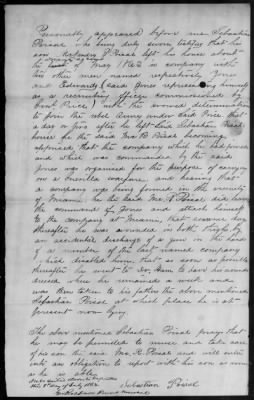 Personally appeared before me Sebastian
Poisal who being duly sworn testifies that his
son McKendry R. Poisal left his house about
the of May 1862 in company with
two other men named respectively Jones
and Edwards (said Jones representing himself
as a recruiting officer commissioned by
Genl Price) with the avowed determination
to join the rebel Army under said Price that
a day or so after he left said Sebastian Poisal's
house he the said Mc R Poisal becoming
apprised that the company which he had joined
and which was commanded by the said
Jones was organised for the purpose of carrying
on a Guerilla warfare, and hearing that
a company was being formed in the vicinity
of Miami he the said Mc R Poisal did leave
the command of Jones and attach himself
to the company at Miami, that
thereafter he was wounded in both thighs by
an accidental discharge of a gun in the hands
of a member of the last named company
which disabled him, that as soon as possible
thereafter he went to to have his wounds
dressed where he remained a week and
was then taken to his father the above mentioned
Sebastian Poisal at which place he is at
present now lying.
The above mentioned Sebastian Poisal prays that
he may be permitted to nurse and take care
of his son the said Mc. R. Poisal and will enter
into an obligation to report with his son as soon
as he is able.
Sebastian Poisal